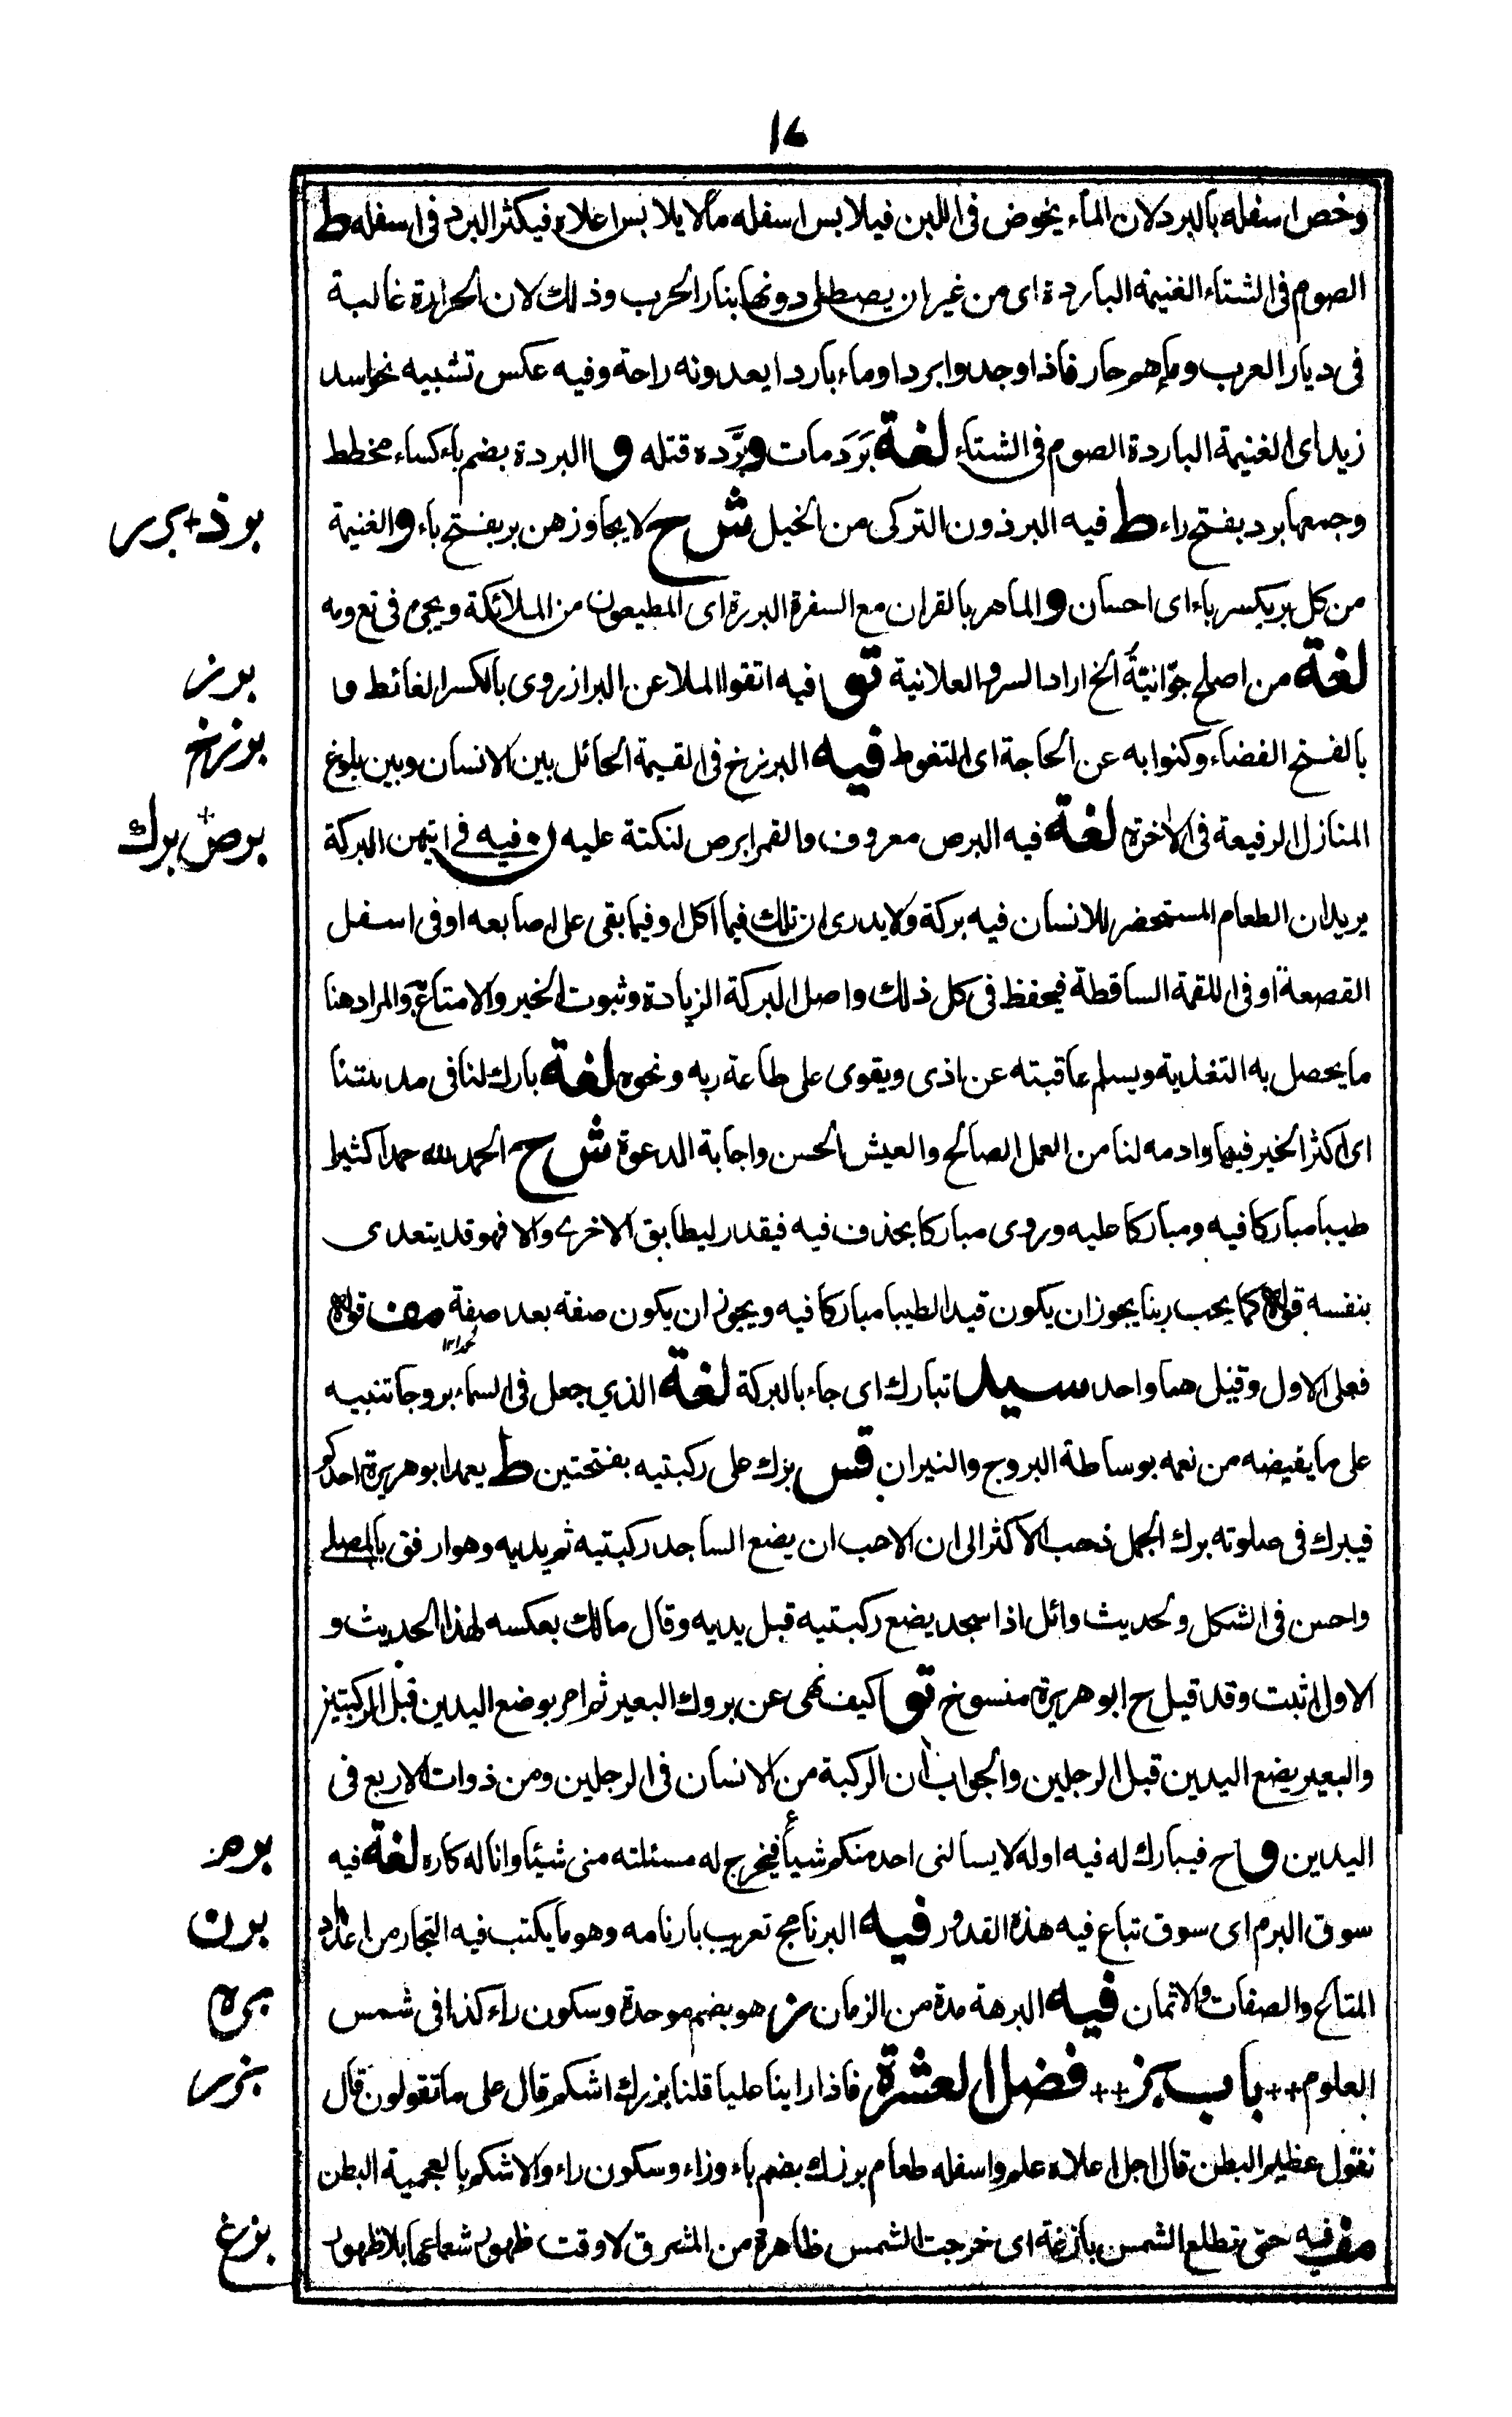 ١٤
وخص اسفله بالبرد لان الماء يخوض فى اللبن فيلابس اسفله مالا يلابس اعلاه فيكثر البرد فى اسفله ط
الصوم فى الشتاء الغنيمة الباردة اى من غير ان يصطلى دونها بنار الحرب وذلك لان الحرارة غالبة
فى ديار العرب وماءهم حار فاذا وجدوا بردا وماء باردا يعدونه راحة وفيه عكس تشبيه نحو اسد
زيد اى الغنيمة الباردة الصوم فى الشتاء لغة بَرَدَ مات وبرَّده قتله و البردة بضم باء كساء مخطط
وجمعها برد بفتح راء ط فيه البرذون التركى من الخيل ش ح لا يجاوزهن بر بفتح باء و الغنيمة
برذ + برر
من كل بر بكسر باء اى احسان و الماهر بالقران مع السفرة البررة اى المطيعون من الملائكة ويجئ فى تع ومه
لغة من اصلح جوّانيّه الخ اراد السر والعلانية تو فيه اتقوا الملاعن البراز روى بالكسر الغائط و
برز
بالفتح الفضاء وكنوا به عن الحاجة اى التغوط فيه البرزخ فى القيمة الحائل بين الانسان وبين بلوغ
برزخ
المنازل الرفيعة فى الاخرة لغة فيه البرص معروف والقمر ابرص لنكتة عليه فيه فى ايتهن البركة
برص + برك
يريد ان الطعام المستحضر للانسان فيه بركة ولا يدرى ان تلك فيما اكل او فيما بقى على اصابعه او فى اسفل
القصعة او فى اللقمة الساقطة فيحفظ فى كل ذلك واصل البركة الزيادة وثبوت الخير والامتاع والمراد هنا
ما يحصل به التغذية ويسلم عاقبته عن اذى ويقوى على طاعة ربه ونحوه لغة بارك لنا فى مدينتنا
اى اكثر الخير فيها وادمه لنا من العمل الصالح والعيش الحسن واجابة الدعوة ش ح الحمد لله حمدا كثيرا
طيبا مباركا فيه ومباركا عليه وروى مباركا بحذف فيه فيقدر ليطابق الاخرى والا فهو قد يتعدى
بنفسه قوله كما يحب ربنا يجوز ان يكون قيدا لطيبا مباركا فيه ويجوز ان يكون صفة بعد صفة مف قوله
فعلى الاول وقيل هما واحد سيد تبارك اى جاء بالبركة لغة الذي جعل فى السماء بروجا تنبيه
على ما يفيضه من نعمه بوساطة البروج والنيران قس برك على ركبتيه بفتحتين ط يعمد ابو هريرة احدكم
فيبرك فى صلوته برك الجمل ذهب الاكثر الى ان الاحب ان يضع الساجد ركبتيه ثم يديه وهو ارفق بالمصلى
واحسن فى الشكل ولحديث وائل اذا سجد يضع ركبتيه قبل يديه وقال مالك بعكسه لهذا الحديث و
الاول اثبت وقد قيل ح ابو هريرة منسوخ تو كيف نهى عن بروك البعير ثم امر بوضع اليدين قبل الركبتين
والبعير يضع اليدين قبل الرجلين والجواب ان الركبة من الانسان فى الرجلين ومن ذوات الاربع فى
اليدين و ح فيبارك له فيه اوله لا يسالنى احد منكم شيأ فيخرج له مسئلته منى شيئا وانا له كاره لغة فيه
برم
سوق البرم اى سوق تباع فيه هذه القدور فيه البرنامج تعريب بارنامه وهو ما يكتب فيه التجار من اعداد
برن
المتاع والصفات والاثمان فيه البرهة مدة من الزمان ز هو بضم موحدة وسكون راء كذا فى شمس
بره
العلوم ++ باب بز ++ فضل العشرة فاذا راينا عليا قلنا بزرك اشكم قال على ما تقولون قال
بزر
نقول عظيم البطن قال اجل اعلاه علم واسفله طعام بزرك بضم باء وزاء وسكون راء والاشكم بالعجمية البطن
مف فيه حتى تطلع الشمس بازغة اى خرجت الشمس ظاهرة من المشرق لا وقت ظهور شعاعها بلا ظهور
بزغ